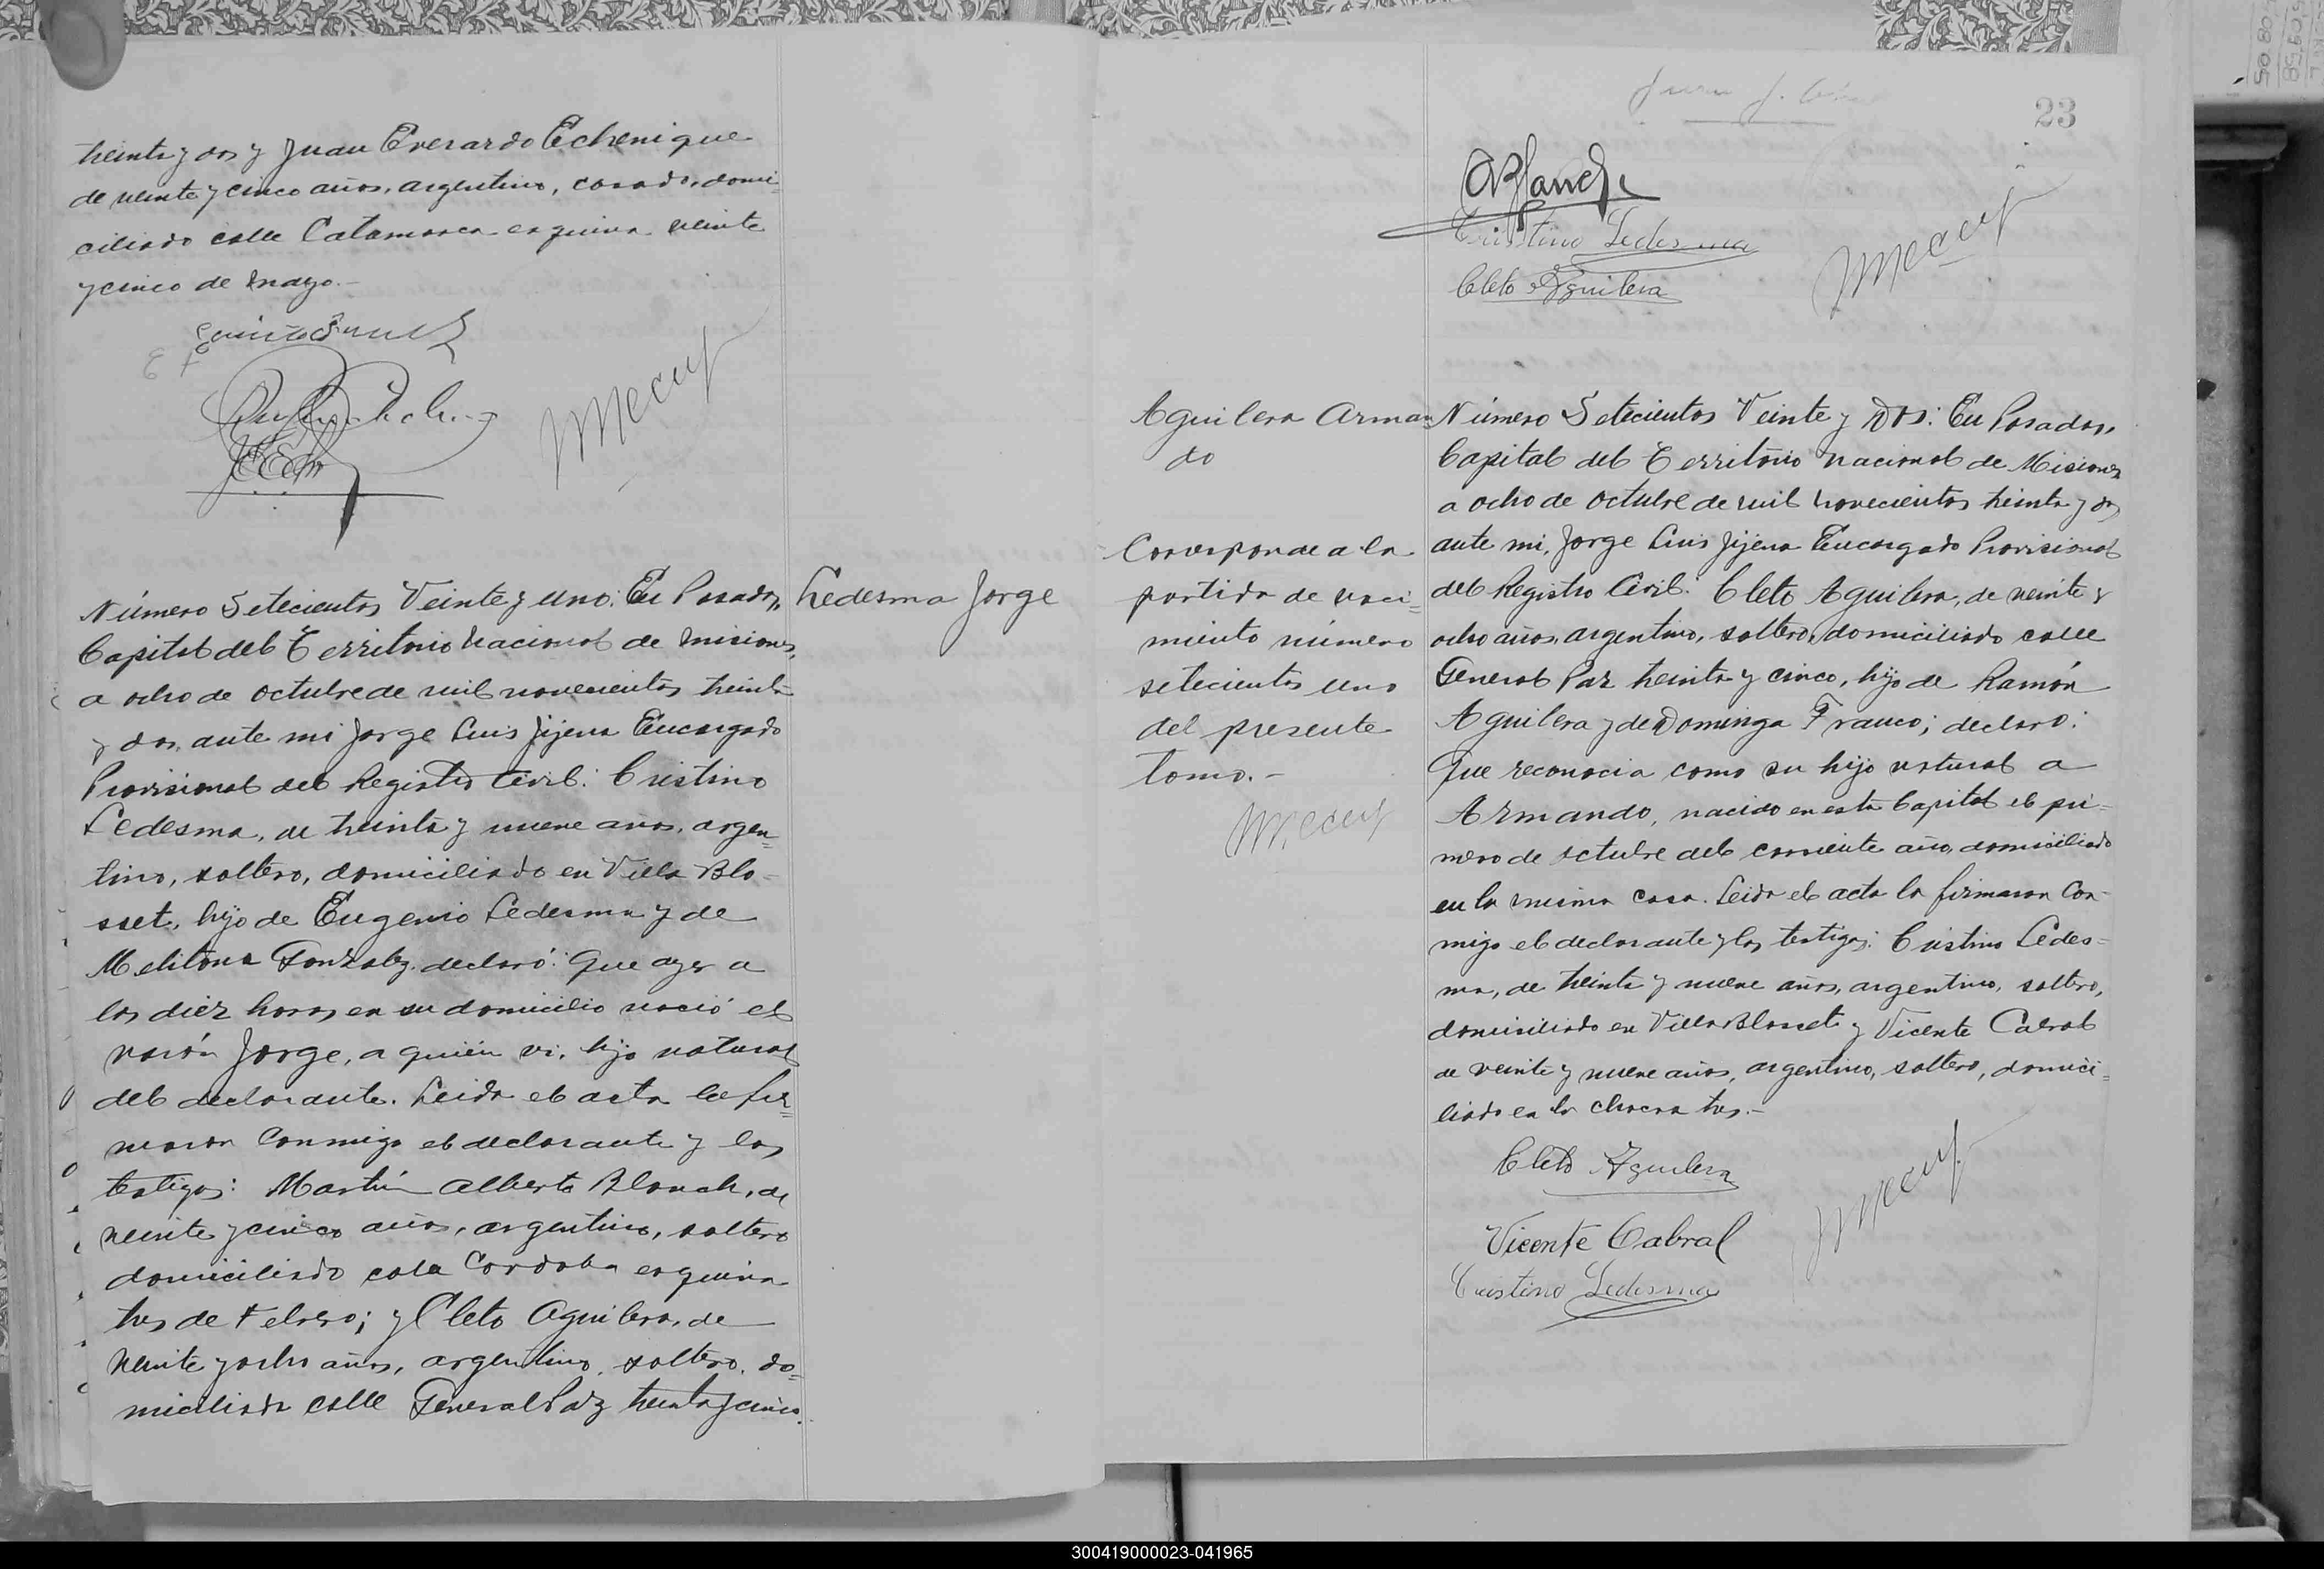 treinta y dos y Juan Everardo Echenique
de veinte y cinco años, argentino, casado, domi-
ciliado calle Catamarca esquina veinte
y cinco de mayo.-
Número Setecientos Veinte y uno: En Posadas,
Capital del Territorio nacional de misiones,
a ocho de octubre de mil novecientos treinta
y dos, ante mi Jorge Luis Jijena Encargado
Provisional del Registro Civil: Cristino
Ledesma, de treinta y nueve años, argen=
tino, soltero, domiciliado en Villa Blo-
sset, hijo de Eugenio Ledesma y de
Melitona Gonzalez, declaró: Que ayer a
las diez horas en su domicilio nació el
varón Jorge, a quién vi, hijo natural
del declarante. Leida el acta la fir=
maron conmigo el declarante y los
testigos: Martín Alberto Blanch, de
veinte y cinco años, argentino, soltero
domiciliado calle Cordoba esquina
tres de Febrero; y Cleto Aguilera, de
veinte y ocho años, argentino, soltero, do=
miciliado calle General Paz treinta y cinco.
Ledesma Jorge
23
Blanch
Cristino Ledesma
Cleto Aguilera
Aguilera Arman=
do
Corresponde a la
partida de naci=
miento número
setecientos uno
del presente
tomo.-
Número Setecientos Veinte y Dos: En Posadas,
Capital del Territorio nacional de Misiones
a ocho de octubre de mil novecientos treinta y dos
ante mi, Jorge Luis Jijena Encargado Provisional
del Registro Civil: Cleto Aguilera, de veinte y
ocho años, argentino, soltero, domiciliado calle
General Paz treinta y cinco, hijo de Ramón
Aguilera y de Dominga Franco; declaró:
Que reconocia como su hijo natural a
Armando, nacido en esta Capital el pri-
mero de octubre del corriente año, domiciliado
en la misma casa. Leida el acta la firmaron con-
migo el declarante y los testigos: Cristino Ledes-
ma, de treinta y nueve años, argentino, soltero,
domiciliado en Villa Blosset y Vicente Cabral
de veinte y nueve años, argentino, soltero, domici=
liado en la chacra tres.-
Cleto Aguilera
Vicente Cabral
Cristino Ledesma
300419000023-041965